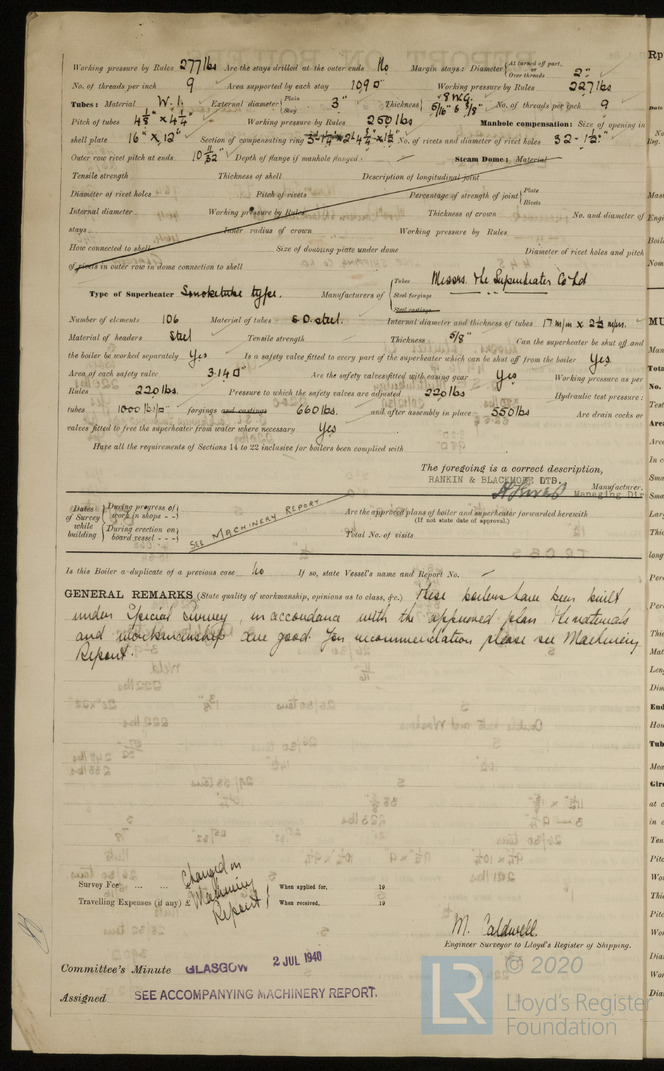 Working pressure by Rules 277 lbs Are the stays drilled at the outer ends No Margin stays: Diameter { At turned off part, or Over threads 2"
No. of threads per inch 9 Area supported by each stay 109 □" Working pressure by Rules 227 lbs
Tubes: Material W.I. External diameter { Plain Stay 3" Thickness { 8 W.G. 5/16" & 3/8" No. of threads per inch 9
Pitch of tubes 4 1/8" x 4 1/4" Working pressure by Rules 250 lbs Manhole compensation: Size of opening in
shell plate 16" x 12" Section of compensating ring No. of rivets and diameter of rivet holes 32 - 1 1/2"
Outer row rivet pitch at ends 10 11/32" Depth of flange if manhole flanged Steam Dome: Material
Tensile strength Thickness of shell Description of longitudinal joint
Diameter of rivet holes Pitch of rivets Percentage of strength of joint { Plate Rivets
Internal diameter Working pressure by Rules Thickness of crown No. and diameter of
stays Inner radius of crown Working pressure by Rules
How connected to shell Size of doubling plate under dome Diameter of rivet holes and pitch
of rivets in outer row in dome connection to shell
Type of Superheater Smoketube type. Manufacturers of { Tubes Steel forgings Steel castings Messrs. The Superheater Co Ltd
Number of elements 106 Material of tubes S.D. Steel. Internal diameter and thickness of tubes 17 m/m x 2 1/2 m/m.
Material of headers Steel Tensile strength Thickness 5/8" Can the superheater be shut off and
the boiler be worked separately Yes Is a safety valve fitted to every part of the superheater which can be shut off from the boiler Yes.
Area of each safety valve 3.14 □" Are the safety valves fitted with easing gear Yes Working pressure as per
Rules 220 lbs. Pressure to which the safety valves are adjusted 220 lbs Hydraulic test pressure:
tubes 1000 lb/□" forgings and castings 660 lbs. and after assembly in place 550 lbs Are drain cocks or
valves fitted to free the superheater from water where necessary Yes
Have all the requirements of Sections 14 to 22 inclusive for boilers been complied with
The foregoing is a correct description,
RANKIN & BLACKMORE LTD.
Manufacturer.
Managing Dir
Dates of Survey while building { During progress of work in shops - - During erection on board vessel - - - SEE MACHINERY REPORT Are the approved plans of boiler and superheater forwarded herewith
(If not state date of approval.)
Total No. of visits
Is this Boiler a duplicate of a previous case No If so, state Vessel's name and Report No. —
GENERAL REMARKS (State quality of workmanship, opinions as to class, &c.) These boilers have been built
under Special Survey, in accordance with the approved plan The materials
and workmanship are good. For recommendation please see Machinery
Report.
Survey Fee ... ... £ When applied for, 19
Travelling Expenses (if any) £ When received, 19
Charged on
Machinery
Report!
M. Caldwell.
Engineer Surveyor to Lloyd's Register of Shipping.
Committee's Minute GLASGOW 2 JUL 1940
Assigned SEE ACCOMPANYING MACHINERY REPORT.
LR © 2020
Lloyd's Register
Foundation